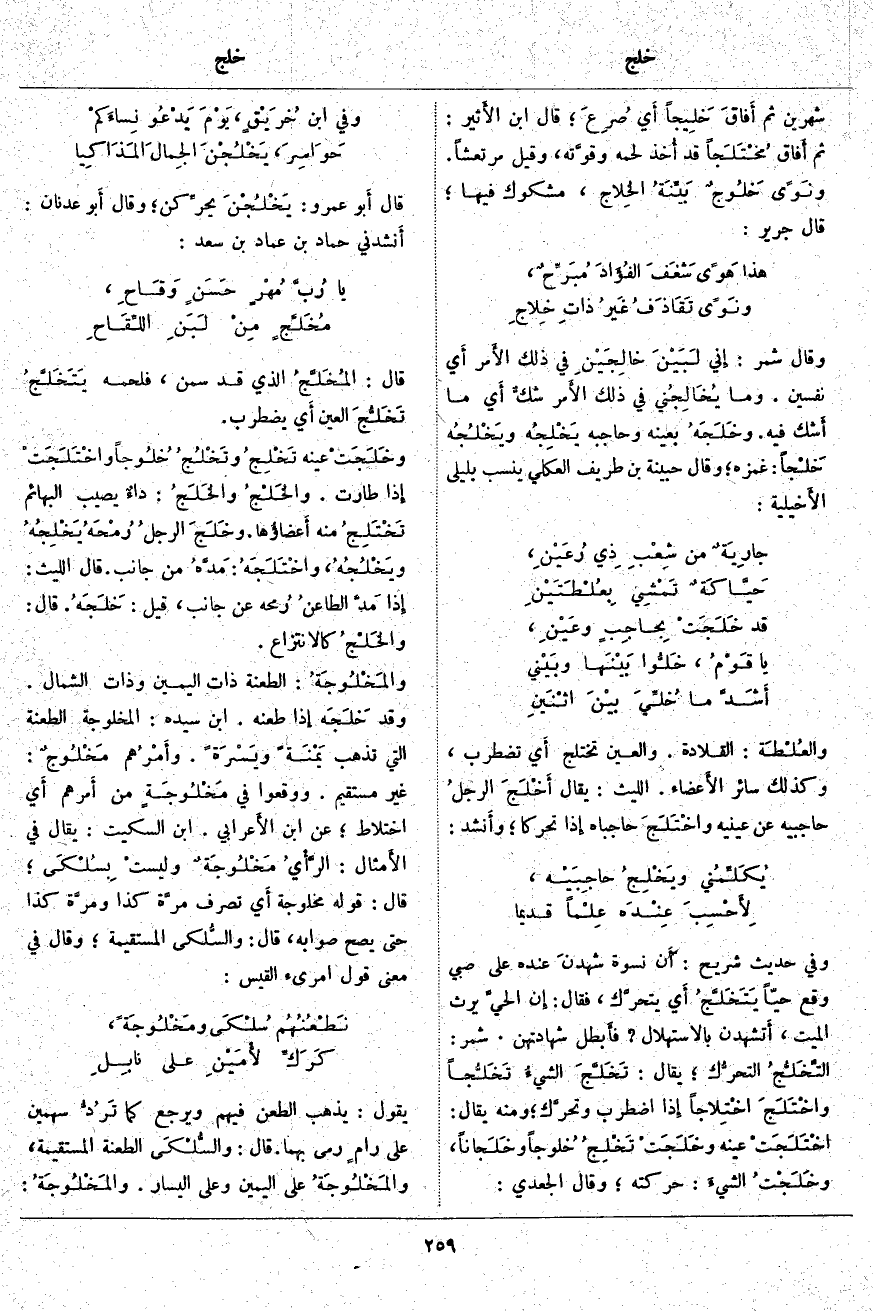 خلج
خلج
شهرين ثم أفاقَ خَلِيجاً أي صُرِعَ ؛ قال ابن الأثير :
ثم أفاق مُخْتَلَجاً قد أُخذ لحمه وقوَّته، وقيل مرتعشاً.
ونَوًى خَلُوجٌ بَيِّنَةُ الخِلاجِ ، مشكوك فيها ؛
قال جرير :
هذا هَوًى شَغَفَ الفُؤادَ مُبَرِّحٌ،
ونَوًى تَقَاذَفُ غَيرُ ذاتِ خِلاجِ
وقال شمر : إني لَبَيْنَ خالِجَيْنِ في ذلك الأمر أي
نفسين . وما يُخالِجُني في ذلك الأمر شكٌّ أي ما
أشك فيه. وخَلَجَهُ بعينه وحاجبه يَخْلِجُه ويَخْلُجُه
خَلْجاً: غمزه؛ وقال حبينة بن طريف العكلي ينسب بليلى
الأخيلية :
جارِيَةٌ من شِعْبِ ذي رُعَيْنِ،
حَيَّاكَةٌ تَمْشِي بِعُلْطَتَيْنِ
قد خَلَجَتْ بِحاجِبٍ وعَيْنِ،
يا قَوْمُ ، خَلُّوا بَيْنَها وبَيْني
أَشَدَّ ما خُلِّيَ بينَ اثْنَينِ
والعُلْطة : القلادة . والعين تختلج أي تضطرب ،
وكذلك سائر الأعضاء . الليث : يقال أَخْلَجَ الرجلُ
حاجبيه عن عينيه واخْتَلَجَ حاجباه إذا تحركا ؛ وأنشد :
يُكَلِّمُني ويَخْلِجُ حاجِبَيْه ،
لِأَحْسِبَ عِنْدَه عِلْماً قديما
وفي حديث شريح : أن نسوة شهدنَ عنده على صبي
وقع حيّاً يَتَخَلَّجُ أي يتحرَّك ، فقال: إن الحيَّ يرث
الميت ، أتشهدن بالاستهلال ؟ فأبطل شهادتهن . شمر :
التَّخَلُّجُ التحرُّك ؛ يقال : تَخَلَّجَ الشيءُ تَخَلُّجاً
واخْتَلَجَ اخْتِلاجاً إذا اضطرب وتحرَّك؛ ومنه يقال:
اخْتَلَجَتْ عينه وخَلَجَتْ تَخْلِجُ خُلوجاً وخَلَجاناً،
وخَلَجْتُ الشيءَ : حركته ؛ وقال الجعدي :
وفي ابن خُرَيْقٍ، يَوْمَ يَدْعُو نِساءَكمْ
حَواسِرَ، يَخْلُجْنَ الجِمالَ المَذاكِيا
قال أبو عمرو: يَخْلُجْنَ يحرِّكن؛ وقال أبو عدنان :
أنشدني حماد بن عماد بن سعد :
يا رُبَّ مُهْرٍ حَسَنٍ وَقَاحِ ،
مُخَلَّجٍ مِنْ لَبَنِ اللِّقَاحِ
قال : المُخَلَّجُ الذي قد سمن ، فلحمه يَتَخَلَّجُ
تَخَلُّجَ العين أي يضطرب.
وخَلَجَتْ عينه تَخْلِجُ وتَخْلُجُ خُلوجاً واخْتَلَجَتْ
إذا طارت . والخَلْجُ والخَلَجُ : داءٌ يصيب البهائم
تَخْتَلِجُ منه أعضاؤها. وخَلَجَ الرجلُ رُمْحَهُ يَخْلِجُهُ
ويَخْلُجُهُ، واخْتَلَجَهُ: مَدَّهُ من جانب. قال الليث:
إذا مَدَّ الطاعنُ رُمحه عن جانب، قيل : خَلَجَهُ. قال:
والخَلْجُ كالانتزاع .
والمَخْلُوجَةُ : الطعنة ذات اليمين وذات الشمال .
وقد خَلَجَه إذا طعنه . ابن سيده : المخلوجة الطعنة
التي تذهب يَمْنَةً ويَسْرَةً . وأَمْرُهم مَخْلُوجٌ :
غير مستقيم . ووقعوا في مَخْلُوجَةٍ من أمرهم أي
اختلاط ؛ عن ابن الأعرابي . ابن السكيت : يقال في
الأمثال : الرَّأْيُ مَخْلُوجَةٌ وليستْ بِسُلْكَى ؛
قال : قوله مخلوجة أي تصرف مرَّة كذا ومرَّة كذا
حتى يصح صوابه، قال: والسُّلكى المستقيمة ؛ وقال في
معنى قول امرىء القيس :
نَطْعَنُهُم سُلْكَى ومَخْلُوجَةً،
كَرَكَّ لأْمَيْنِ على نابِلِ
يقول : يذهب الطعن فيهم ويرجع كما تَرُدُّ سهمين
على رامٍ رمى بهما. قال : والسُّلْكَى الطعنة المستقيمة،
والمَخْلُوجَةُ على اليمين وعلى اليسار . والمَخْلُوجَةُ :
٢٥٩